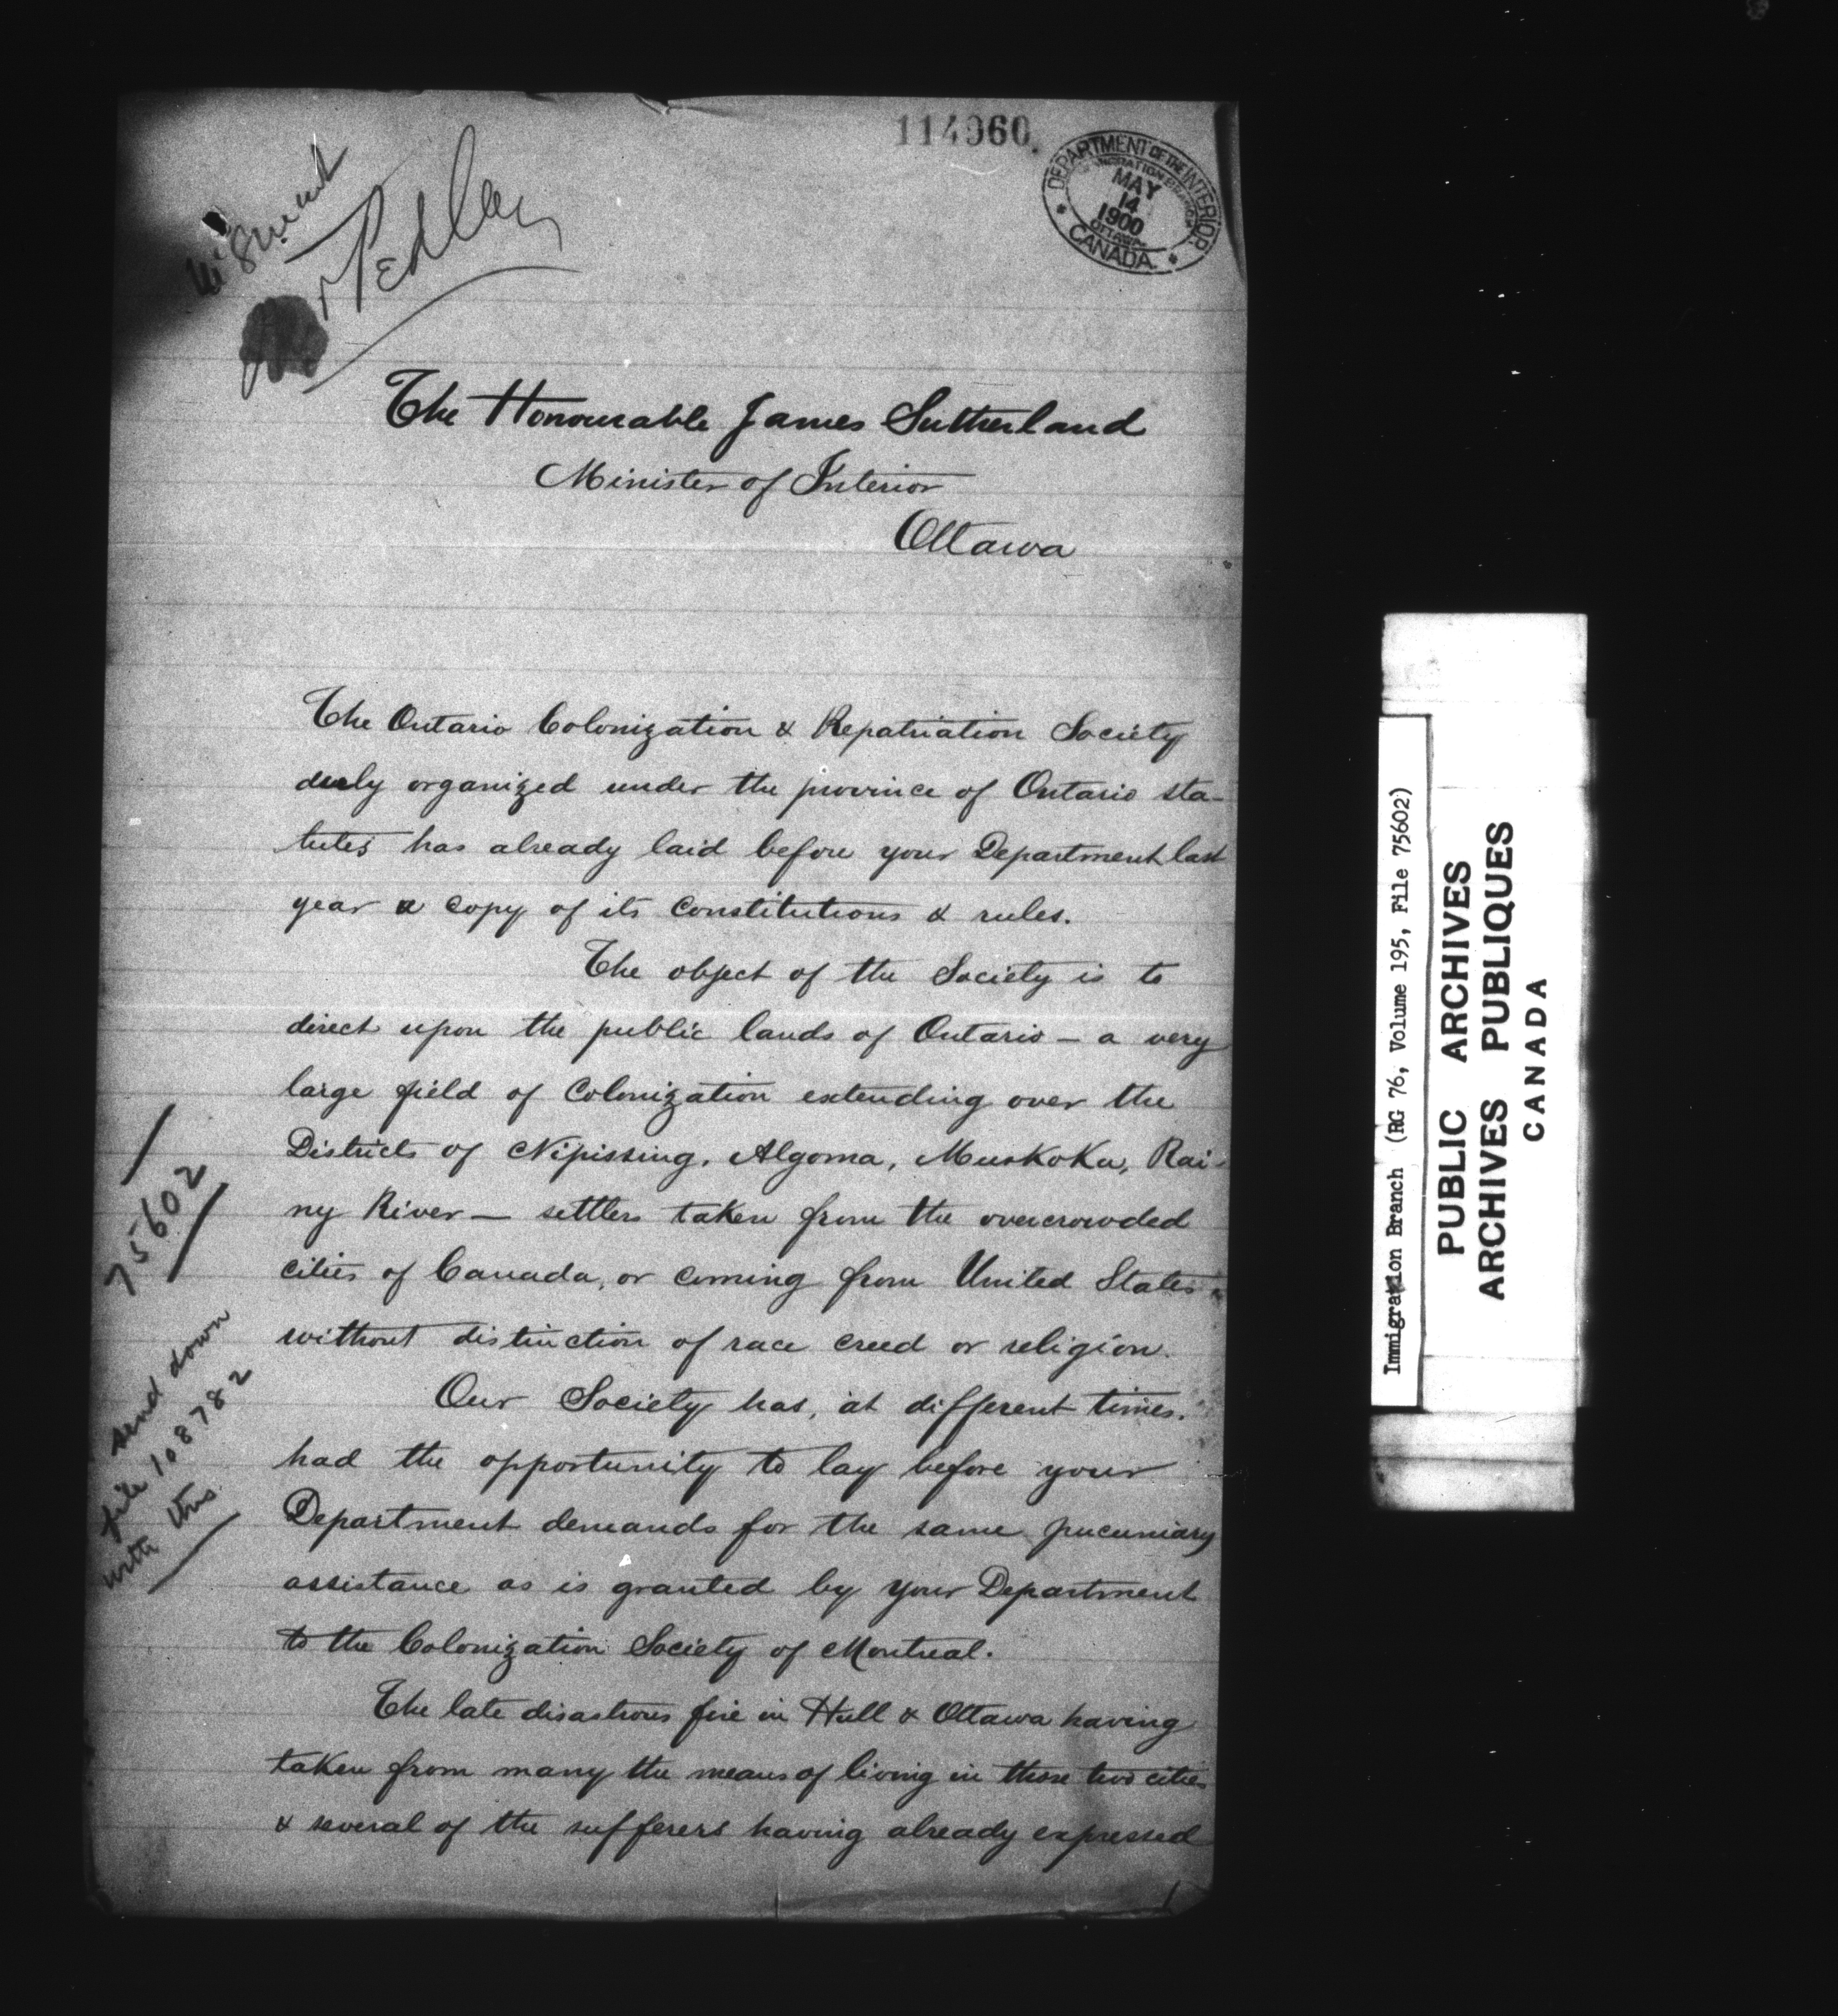 114960.
DEPARTMENT OF THE INTERIOR
IMMIGRATION BRANCH
MAY
14
1900
OTTAWA
CANADA
Mr Pedley
The Honourable James Sutherland
Minister of Interior
Ottawa
The Ontario Colonization & Repatriation Society
duly organized under the province of Ontario sta-
tutes has already laid before your Department last
year a copy of its constitutions & rules.
The object of the Society is to
direct upon the public lands of Ontario — a very
large field of Colonization extending over the
Districts of Nipissing, Algoma, Muskoka, Rai-
ny River — settlers taken from the overcrowded
cities of Canada, or coming from United States
without distinction of race creed or religion.
Our Society has, at different times,
had the opportunity to lay before your
Department demands for the same pucuniary
assistance as is granted by your Department
to the Colonization Society of Montreal.
The late disastrous fire in Hull & Ottawa having
taken from many the means of living in these two cities
& several of the sufferers having already expressed
75602
send down
file 108782
with this
1
Immigration Branch (RG 76, Volume 195, File 75602)
PUBLIC ARCHIVES
ARCHIVES PUBLIQUES
CANADA